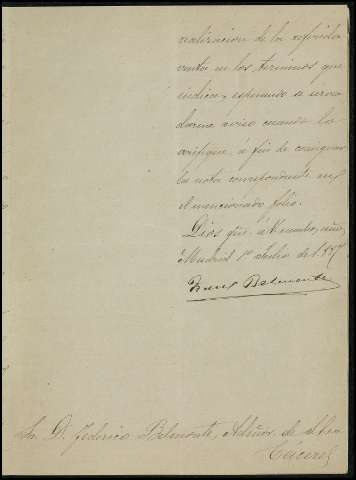 realizacion de la referida
venta en los terminos que
indica, esperando se sirva
darme aviso cuando la
verifique á fin de consignar
la nota correspondiente en
el mencionado folio.
Dios gũe. á V. muchos años,
Madrid 1º Julio de 1.887
Franco Belmonte
Sr. D. Federico Belmonte, Admor. de
Cáceres